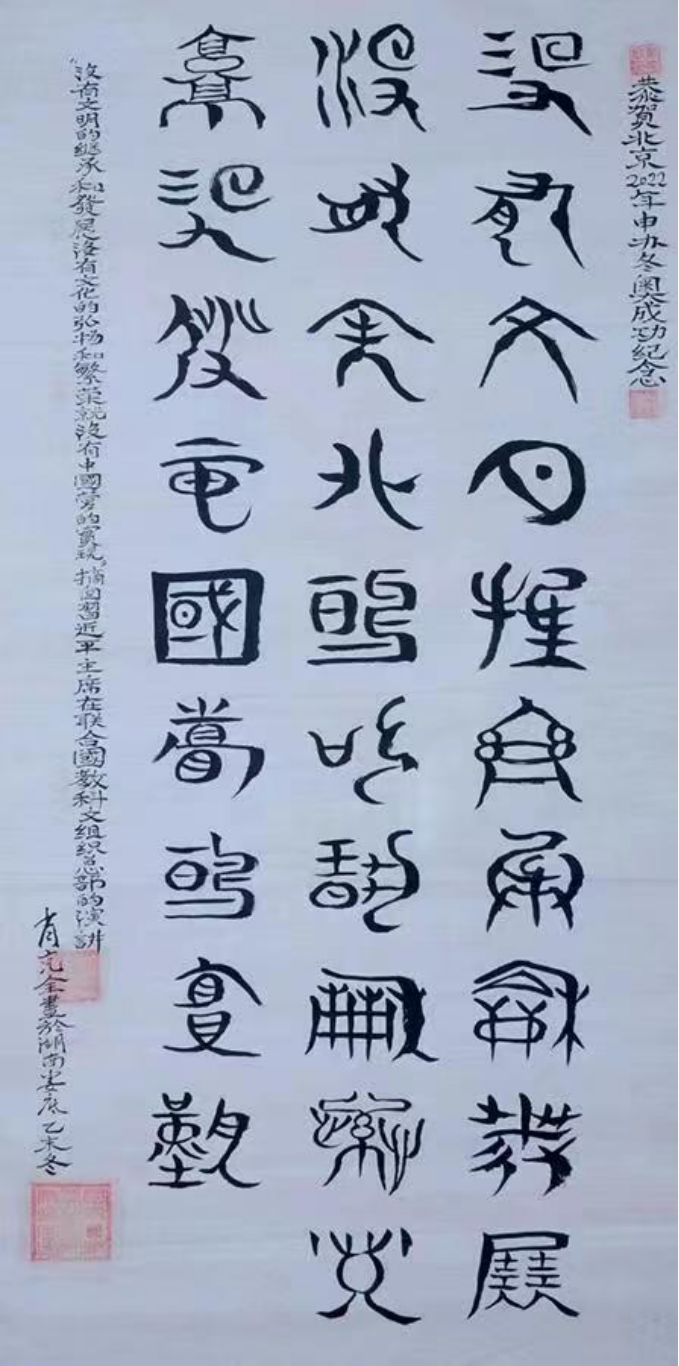 恭賀北京2022年申办冬奥成功纪念
没有文明的繼承和發展
没有文化的弘揚和繁榮
就没有中國夢的實現
“没有文明的继承和發展没有文化的弘扬和繁荣就没有中國夢的實现”摘自習近平主席在联合國教科文组织总部的演讲
肖全書於湖南娄底乙未冬